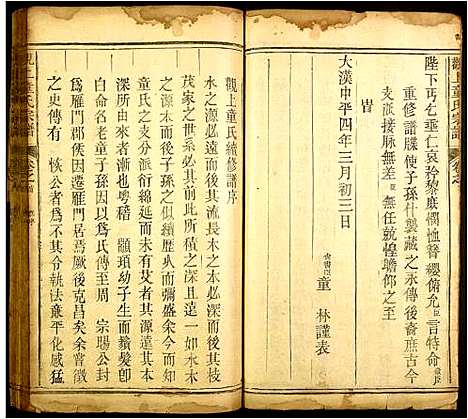 觀上童氏宗譜
陛下丐乞垂仁哀矜黎庶憫恤簪纓俯允臣言特命
重修譜牒使子孫什襲藏之永傳後裔庶古今
支派接脉無差臣無任兢惶瞻仰之至
旹
大漢中平四年三月初三日
尚書臣童 林謹表
觀上童氏續修譜序
水木之源必遠而後其流長木之本必深而後其枝
茂家之世系必其所積之深且遠一如水木
之源木而子孫之似續歷久而彌盛余今而知
童氏之支分派衍綿延而未有艾者其源遠其本
深所由來者漸也粵稽 顓頊幼子生而鬚髮卽
白命名老童子孫因以爲氏傳至周 宗賜公封
爲雁門郡侯遂居雁門焉世代勳戚之裔余嘗徵
之史傳有 恢公者爲不其令執法嚴平化感猛
觀上童氏宗譜